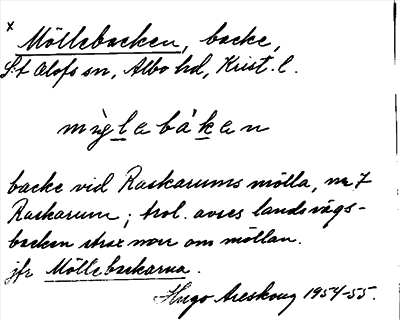 x Möllebacken, backe,
S:t Olofs sn, Albo hd, Krist. l.
mø̀glabákan
backe vid Raskarums mölla, nr 7
Raskarum; trol. avses landsvägs-
backen strax norr om möllan.
jfr Möllebackarna.
Hugo Areskoug 1954-55.